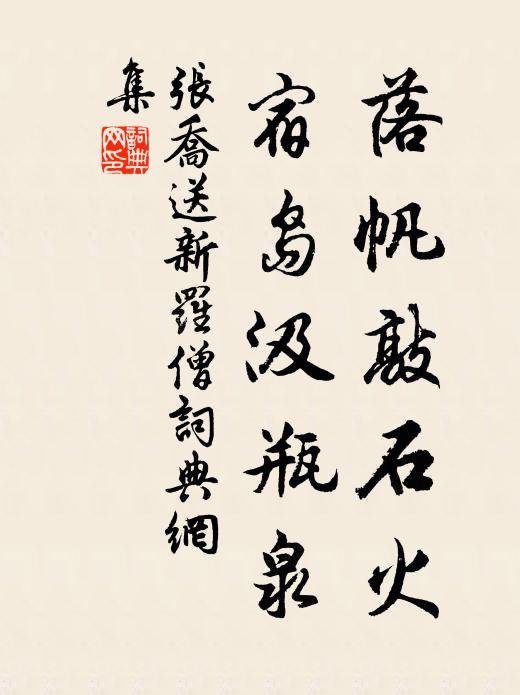 落帆敲石火
宿島汲瓶泉
張喬送新羅僧詞典網
集
詞典網印